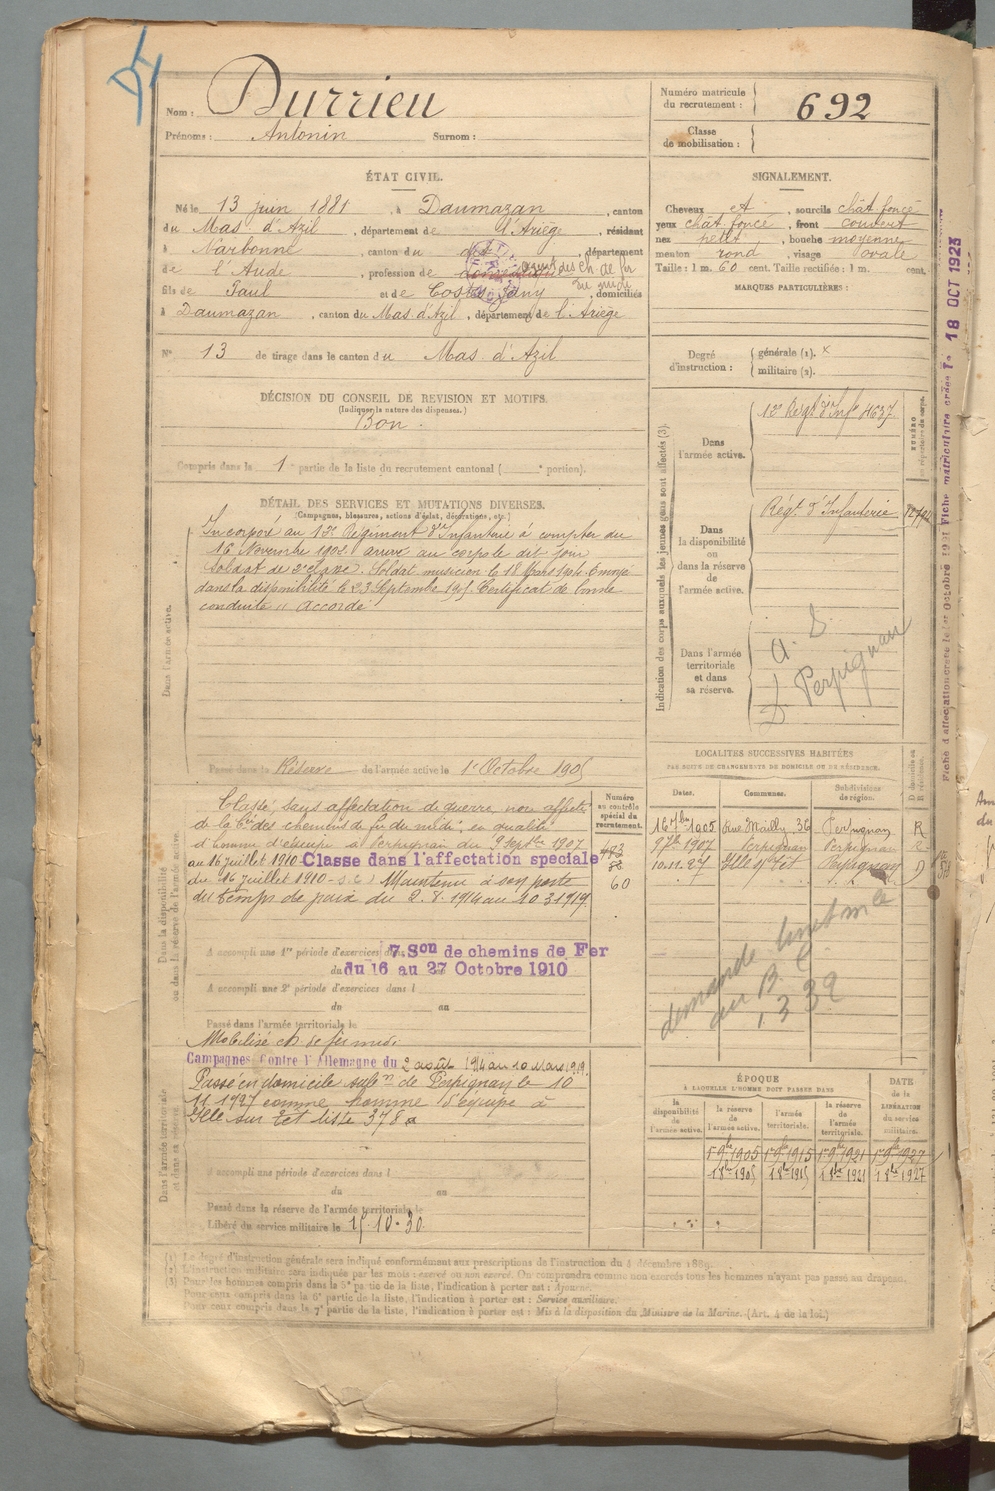 Nom : Durrieu
Prénoms : Antonin Surnom :
Numéro matricule du recrutement : 692
Classe de mobilisation :
ÉTAT CIVIL.
Né le 13 juin 1881, à Daumazan, canton
du Mas d'Azil, département de l'Ariège, résidant
à Narbonne, canton du dit, département
de l'Aude, profession de agent des Ch. de fer du midi
fils de Paul et de Costes Fany, domiciliés
à Daumazan, canton du Mas d'Azil, département de l'Ariège
N° 13 de tirage dans le canton du Mas d'Azil
SIGNALEMENT.
Cheveux et, sourcils chât foncé
yeux chât foncé, front couvert
nez petit, bouche moyenne
menton rond, visage ovale
Taille : 1 m. 60 cent. Taille rectifiée : 1 m. cent.
MARQUES PARTICULIÈRES :
Degré d'instruction : générale (1). x
militaire (2).
DÉCISION DU CONSEIL DE REVISION ET MOTIFS.
(Indiquer la nature des dispenses.)
Bon.
Compris dans la 1e partie de la liste du recrutement cantonal ( e portion).
DÉTAIL DES SERVICES ET MUTATIONS DIVERSES.
(Campagnes, blessures, actions d'éclat, décorations, etc.)
Dans l'armée active.
Incorporé au 12e Régiment d'Infanterie à compter du
16 Novembre 1902. arrivé au corps le dit jour
soldat de 2e classe. Soldat musicien le 18 Mars 1904. Envoyé
dans la disponibilité le 23 Septembre 1905. Certificat de bonne
conduite " accordé
Passé dans la Réserve de l'armée active le 1er Octobre 1905
Indication des corps auxquels les jeunes gens sont affectés (3).
NUMÉRO au répertoire du corps.
Dans l'armée active.
12e Régt d'Infie 4637
Dans la disponibilité ou dans la réserve de l'armée active.
Régt d'Infanterie
Dans l'armée territoriale et dans sa réserve.
Perpignan
Dans la disponibilité ou dans la réserve de l'armée active.
Classé sans affectation de guerre non affecté
de la Cie des chemins de fer du midi, en qualité
d'homme d'équipe à Perpignan du 9 Septbre 1907
au 16 juillet 1910 Classe dans l'affectation speciale
du 16 juillet 1910 Maintenu à son poste
du temps de paix du 2.8.1914 au 10 3 1919
Numéro au contrôle spécial du recrutement.
483
60
A accompli une 1re période d'exercices dans 7e Son de chemins de Fer
du 16 au 27 Octobre 1910
A accompli une 2e période d'exercices dans l
du au
Passé dans l'armée territoriale le
Mobilisé ch. de fer midi
Campagnes Contre l'Allemagne du 2 août 1914 au 10 Mars 1919.
Dans l'armée territoriale et dans sa réserve.
Passé en domicile subon de Perpignan le 10
11 1927 comme homme d'équipe à
Ille sur Tet liste 378 a
A accompli une période d'exercices dans l
du au
Passé dans la réserve de l'armée territoriale le
Libéré du service militaire le 15-10-30
LOCALITÉS SUCCESSIVES HABITÉES
PAR SUITE DE CHANGEMENTS DE DOMICILE OU DE RÉSIDENCE.
Dates. Communes. Subdivisions de région. D domicile ou R résidence.
16 7bre 1905 Rue Mailly, 36 Perpignan R
9 7bre 1907 Perpignan Perpignan R
10.11.27 Ille s/ Tet Perpignan D
demande
au B. C.
1 3 39
ÉPOQUE
À LAQUELLE L'HOMME DOIT PASSER DANS
la disponibilité de l'armée active. la réserve de l'armée active. l'armée territoriale. la réserve de l'armée territoriale.
DATE de la LIBÉRATION du service militaire.
1er 9bre 1905 1er 9bre 1915 1er 9bre 1921 1er 9bre 1927
1 8bre 1905 1 8bre 1915 1 8bre 1921 1 8bre 1927
Fiche d'affectation créée le 1er Octobre 1921 Fiche matriculaire créée le 18 OCT 1923
(1) Le degré d'instruction générale sera indiqué conformément aux prescriptions de l'instruction du 4 décembre 1889.
(2) L'instruction militaire sera indiquée par les mots : exercé ou non exercé. On comprendra comme non exercés tous les hommes n'ayant pas passé au drapeau.
(3) Pour les hommes compris dans la 5e partie de la liste, l'indication à porter est : Ajourné.
Pour ceux compris dans la 6e partie de la liste, l'indication à porter est : Service auxiliaire.
Pour ceux compris dans la 7e partie de la liste, l'indication à porter est : Mis à la disposition du Ministre de la Marine. (Art. 4 de la loi.)